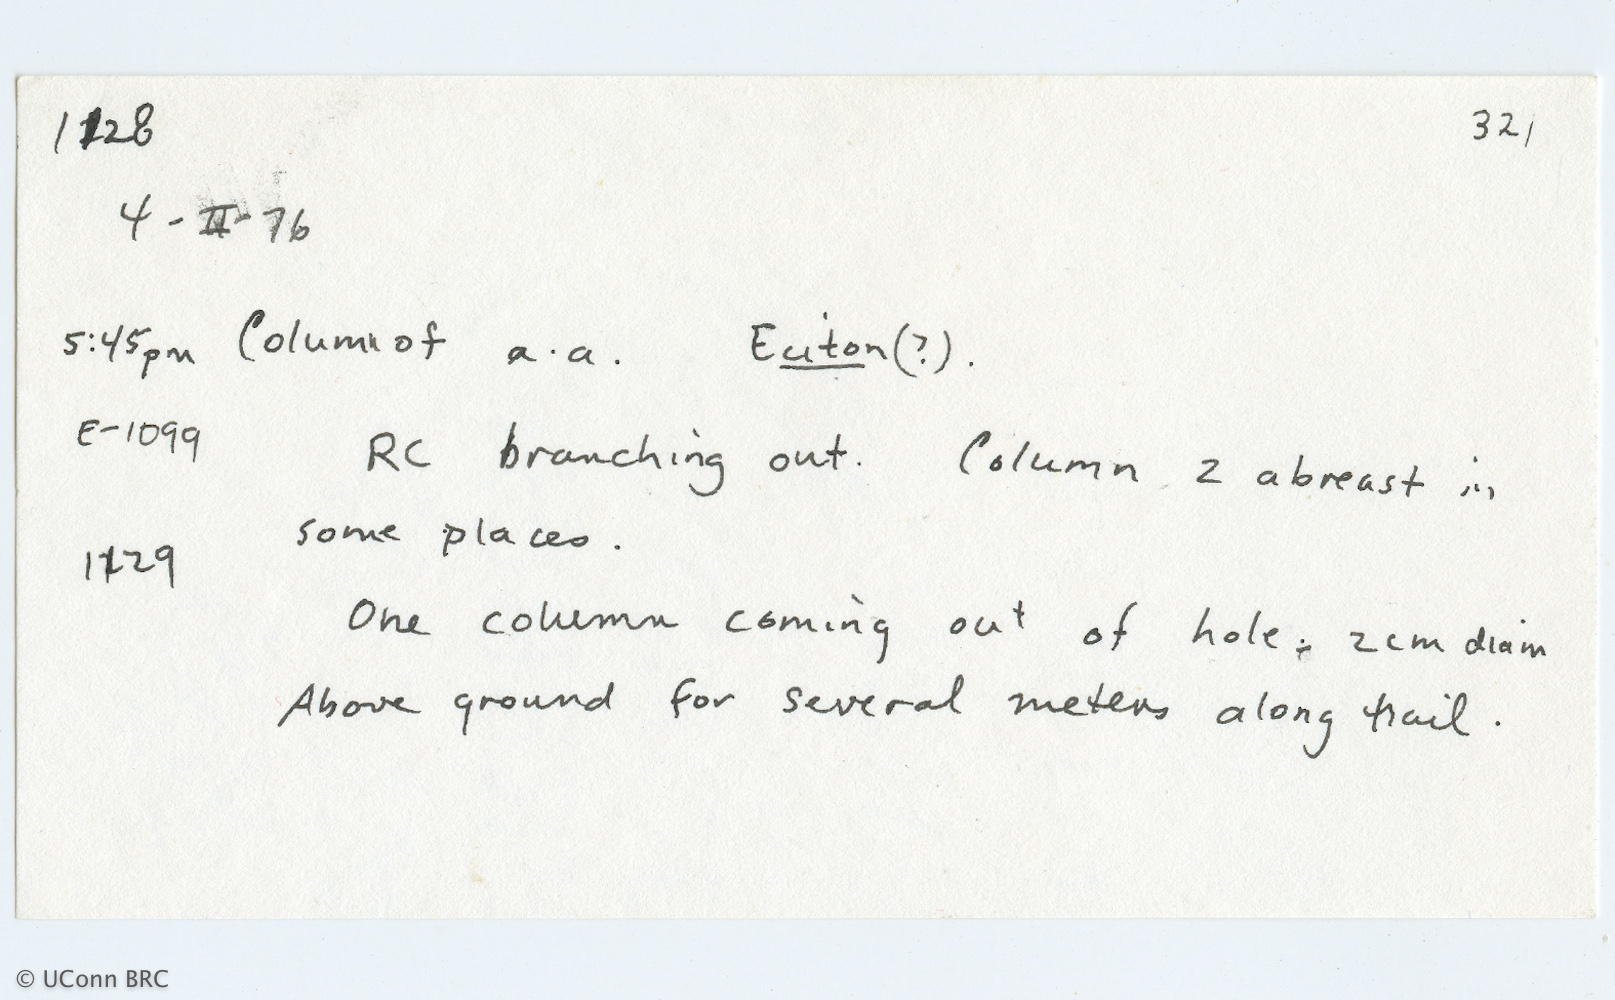 1128 321
4-II-76
5:45pm Column of a.a. Eciton(?).
E-1099 RC branching out. Column 2 abreast in
some places.
1129
One column coming out of hole; 2cm diam
Above ground for several meters along trail.
© UConn BRC